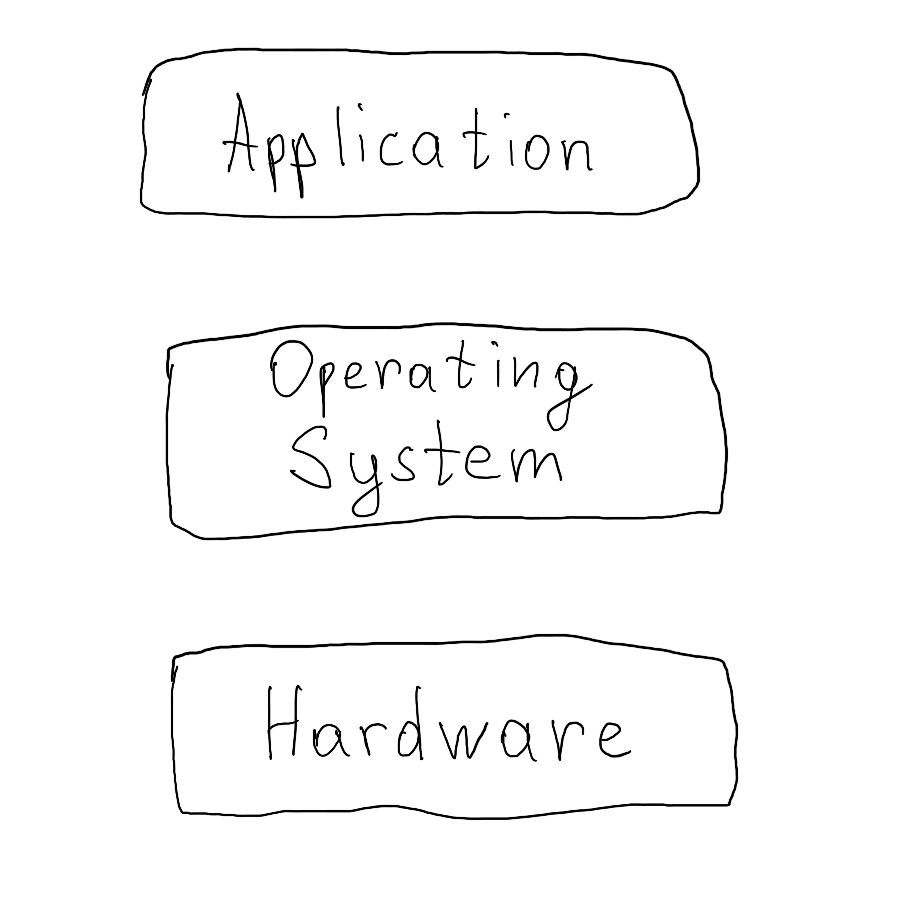 Application
Operating
System
Hardware